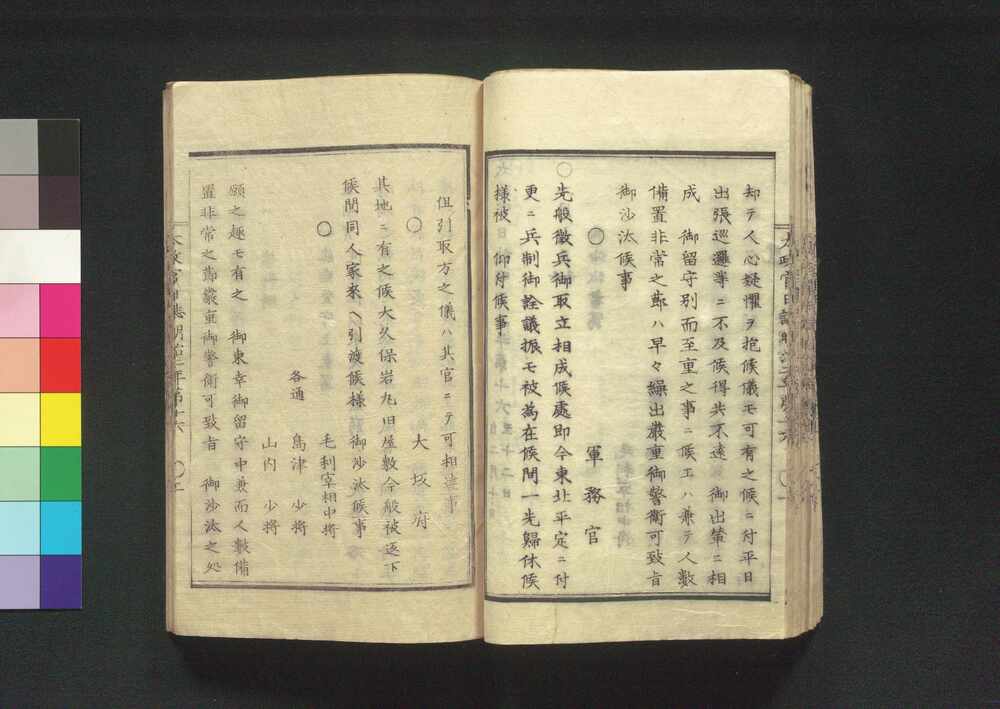 知テ人心疑懼ヲ抱候儀モ可有之候ニ付平日
出張巡邏等ニ不及候得共不遠　御出輦ニ相
成　御留守別而至重之事ニ候エハ兼テ人数
備置非常之節ハ早々繰出嚴重御警衛可致旨
御沙汰候事
○　軍務官
○先般徴兵御取立相成候處即今東北平定ニ付
更ニ兵制御詮議振モ被為在候間一ト先歸休候
様被　仰付候事
但引取方之儀ハ其官ニテ可相達事
○　大坂府
其地ニ有之候大久保岩丸旧屋敷今般被返下
候間同人家来ヘ引渡候様　御沙汰候事
○　毛利宰相中将
各通　島津　少将
山内　少将
願之趣モ有之　御東幸御留守中兼而人数備
置非常之節嚴重御警衛可致旨　御沙汰之処